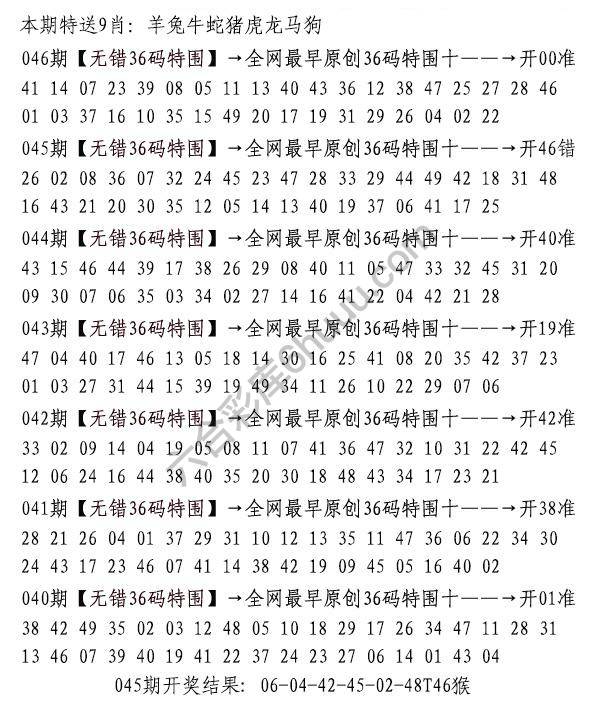 本期特送9肖：羊兔牛蛇猪虎龙马狗
046期【无错36码特围】→全网最早原创36码特围十——→开00准
41 14 07 23 39 08 05 11 13 40 43 36 12 38 47 25 27 28 46
01 03 37 16 10 35 15 49 20 17 19 31 29 26 04 02 22
045期【无错36码特围】→全网最早原创36码特围十——→开46错
26 02 08 36 07 32 24 45 23 47 28 33 29 44 49 42 18 31 48
16 43 21 20 30 35 12 05 14 13 40 19 37 06 41 17 25
044期【无错36码特围】→全网最早原创36码特围十——→开40准
43 15 46 44 39 17 38 26 29 08 40 11 05 47 33 32 45 31 20
09 30 07 06 35 03 34 02 27 14 16 41 22 04 42 21 28
043期【无错36码特围】→全网最早原创36码特围十——→开19准
47 04 40 17 46 13 05 18 14 30 16 25 41 08 20 35 42 37 23
01 03 27 31 44 15 39 19 49 34 11 26 10 22 29 07 06
042期【无错36码特围】→全网最早原创36码特围十——→开42准
33 02 09 14 04 19 05 08 11 07 41 36 47 32 10 31 22 42 45
12 06 24 16 44 38 40 35 20 30 18 48 43 34 17 23 21
041期【无错36码特围】→全网最早原创36码特围十——→开38准
28 21 26 04 01 37 29 31 10 12 13 35 11 47 36 06 22 34 30
24 43 17 23 46 07 41 14 38 42 19 09 45 05 16 40 02
040期【无错36码特围】→全网最早原创36码特围十——→开01准
38 42 49 35 02 03 12 48 05 10 18 29 17 26 34 47 11 28 31
13 46 07 39 40 19 41 22 37 24 23 27 06 14 01 43 04
045期开奖结果：06-04-42-45-02-48T46猴
六合彩库6huuu.com